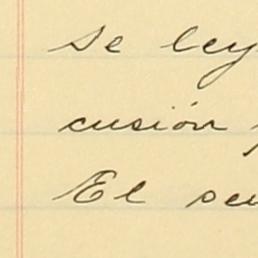 Se ley
cusión
El